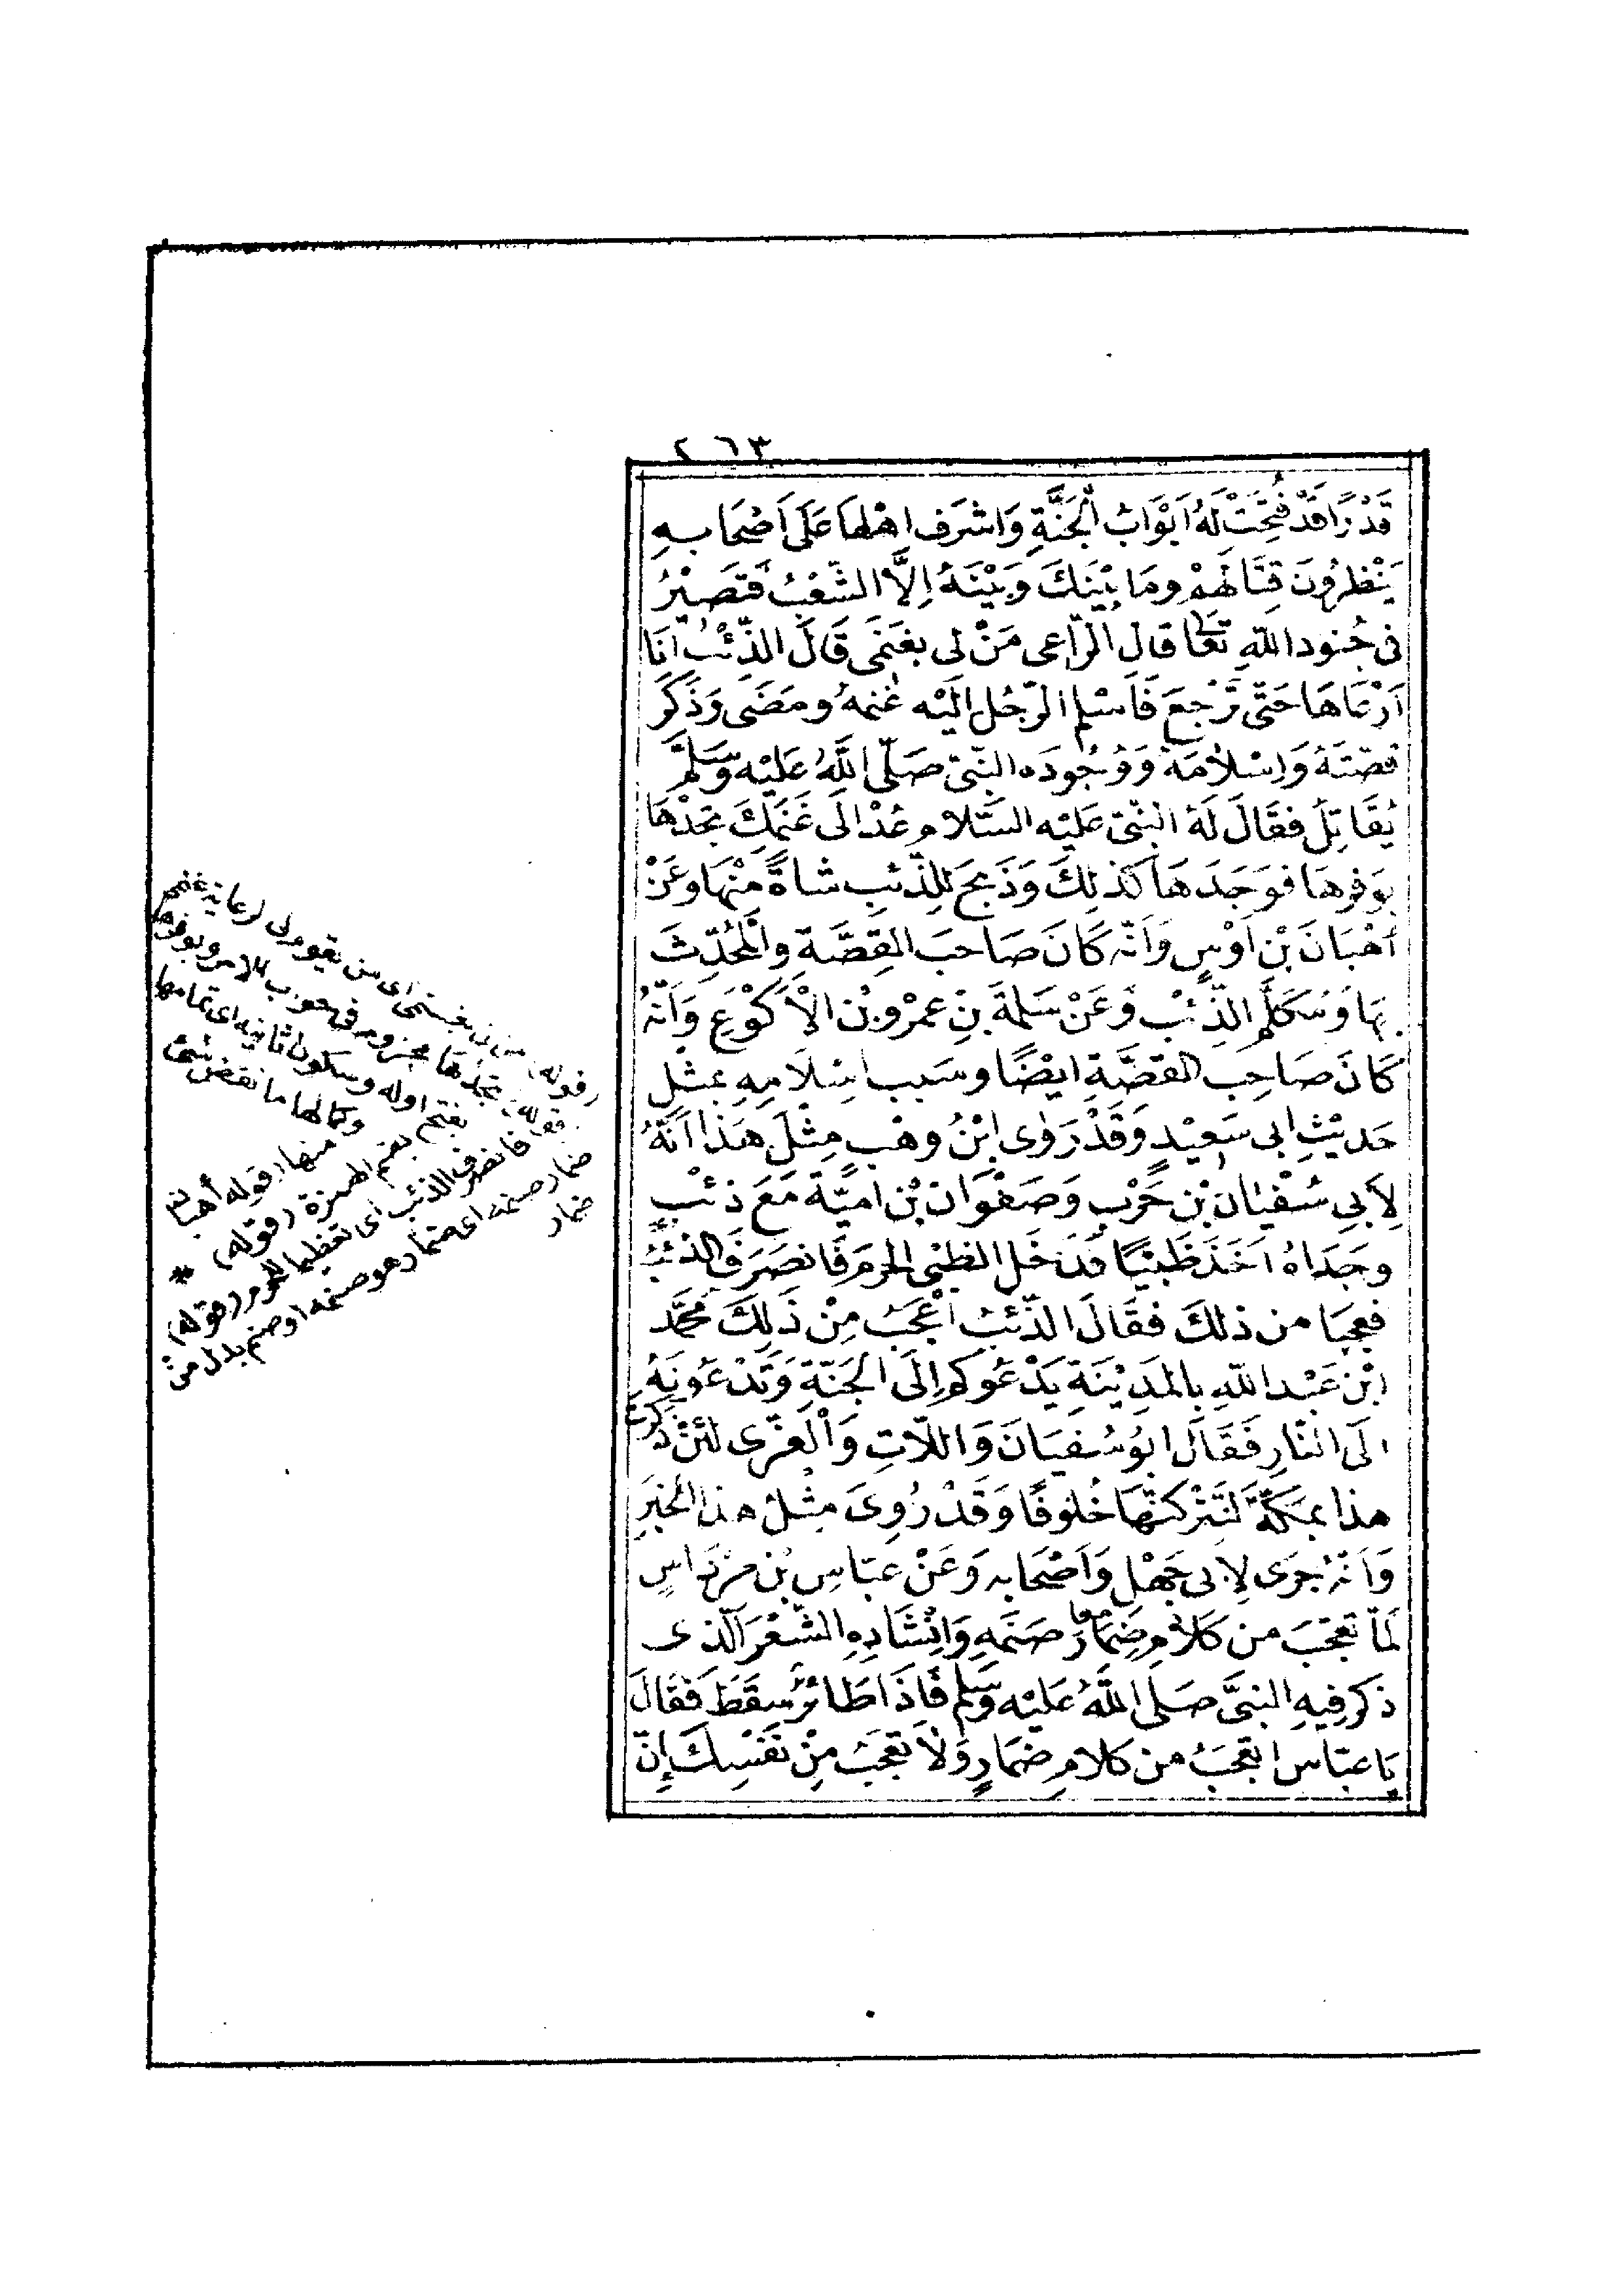 ٢٦٣
قَدْرًا قَدْ فُتِحَتْ لَهُ اَبْوَابُ الْجَنَّةِ وَاشْرَفَ اهْلُهَا عَلَى اَصْحَابِهِ
يَنْظُرُونَ قِتَالَهُمْ وَمَا بَيْنَكَ وَبَيْنَهُ اِلَّا الشِّعْبُ فَتَصِيْرُ
فى جُنودِ اللّٰهِ تَعَالى قال الرَّاعى مَنْ لى بِغَنَمى قَالَ الذِّئْبُ اَنَا
اَرْعَاهَا حَتّى تَرْجِعَ فَاَسْلَمَ الرّجُل اِلَيْه غَنمهُ ومَضَى وَذَكَرَ
قصّتَهُ وَاِسْلَامَهُ وَوُجُودَه النبّىَ صَلّى اللَّهُ عَلَيْه وَسَلَّمَ
يُقَاتِلُ فقَالَ لَهُ النبّىّ عَلَيْه السَّلام عُدْ الَى غَنَمِكَ تجدْهَا
بوَفْرِهَا فوَجَدَهَا كَذلِكَ وَذَبحَ لِلذّئبِ شاةً مِنْهَا وعَنْ
اُهْبَانَ بْنِ اَوْسٍ وَاَنّه كَانَ صَاحِبَ القِصَّةِ وَالْمُحَدِّثَ
بهَا وَمُكَلِّمَ الذِّئْبِ وَعَنْ سَلمَةَ بنِ عمْرِو بْن الْاَكْوَعِ وَاَنّهُ
كَانَ صَاحِبَ القصَّةِ ايْضًا وسَببَ اِسْلَامِهِ بمثْلِ
حَديْثِ ابى سَعِيْدٍ وَقَدْ رَوٰى ابْنُ وهْب مِثْلَ هَذَا اَنَّهُ
لِاَبى سُفْيَان بْن حَرْبٍ وَصَفْوَان بْن امَيَّة مَعَ ذئْبٍ
وجَدَاهُ اَخَذَ ظَبْيًا فدَخَل الظبْى الحرم فَانصَرَفَ الذئْبُ
فعجبَا من ذلكَ فقَالَ الذّئبُ اَعْجَبُ مِنْ ذَلِكَ مُحَمَّد
ابْن عَبْد اللّهِ بالمدِيْنَةِ يَدْعُوكم اِلَى الْجَنّةِ وَتَدْعُونَهُ
الَى النَّارِ فَقَالَ ابُو سُفيَانَ وَاللّاتِ وَالْعُزّى لئِنْ ذكَرْتَ
هذا بمَكَّةَ لَتَتْركنّهَا خُلوفًا وَقَدْ رُوِىَ مِثْلُ هذَا الخبَرِ
وَاَنّهُ جَرَى لِابى جَهْل وَاَصْحَابه وَعَنْ عبّاسِ بْن مرْدَاسٍ
لمَّا تعَجّبَ من كَلَامِ ضِمَارٍ صَنَمِهِ وَاِنْشَادِهِ الشّعْرَ الّذى
ذكر فِيهِ النبىَّ صَلى اللّهُ عَلَيْه وَسَلم فَاذَا طَائرٌ سقَطَ فَقَالَ
يَا عبّاس اتعْجَبُ من كلام ضمَارٍ وَلَا تعْجَبُ مِنْ نَفْسِكَ اِنّ
(قوله من لى بغنمى اى من يقوم لى لرعاية غنمى
قوله تجدها مجزوم فى جواب الامر وبوفرها
بفتح اوله وسكون ثانيه اى بتمامها
وكمالها ما نقص شئ
منها (قوله أهبان
بضم الهمزة (قوله) *
فانصرف الذئب اى تعظيما للحرم (قوله)
ضمار صنمه اى ضمار هو صنمه او صنم بدل من
ضمار